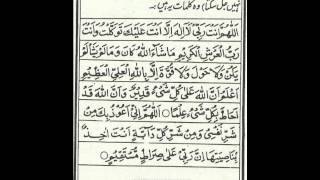 نہیں جل سکتا) وہ کلمات یہ ہیں:۔
اَللّٰهُمَّ اَنْتَ رَبِّيْ لَا اِلٰهَ اِلَّا اَنْتَ عَلَيْكَ تَوَكَّلْتُ وَاَنْتَ
رَبُّ الْعَرْشِ الْكَرِيْمِ مَا شَآءَ اللّٰهُ كَانَ وَمَا لَمْ يَشَأْ لَمْ
يَكُنْ وَلَا حَوْلَ وَلَا قُوَّةَ اِلَّا بِاللّٰهِ الْعَلِيِّ الْعَظِيْمِ
اَعْلَمُ اَنَّ اللّٰهَ عَلٰى كُلِّ شَيْءٍ قَدِيْرٌ وَّاَنَّ اللّٰهَ قَدْ
اَحَاطَ بِكُلِّ شَيْءٍ عِلْمًا اَللّٰهُمَّ اِنِّيْ اَعُوْذُ بِكَ مِنْ
شَرِّ نَفْسِيْ وَمِنْ شَرِّ كُلِّ دَآبَّةٍ اَنْتَ اٰخِذٌ
بِنَاصِيَتِهَا اِنَّ رَبِّيْ عَلٰى صِرَاطٍ مُّسْتَقِيْمٍ